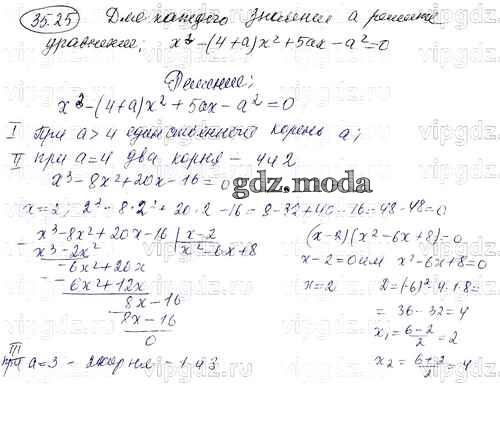 35.25 Для каждого значения а решите
уравнение: x³-(4+a)x²+5ax-a²=0
Решение:
x³-(4+a)x²+5ax-a²=0
I При a>4 единственный корень a;
II при a=4 два корня - 4 и 2
x³-8x²+20x-16=0
gdz.moda
x=2; 2³-8·2²+20·2-16=8-32+40-16=48-48=0
x³-8x²+20x-16 | x-2
x³-2x² x²-6x+8
-6x²+20x
-6x²+12x
8x-16
8x-16
0
(x-2)(x²-6x+8)=0
x-2=0 или x²-6x+8=0
x=2 D=(-6)²-4·1·8=
= 36-32=4
x₁=6-2/2=2
x₂=6+2/2=4
III
при a=3 - 2 корня - 1 и 3